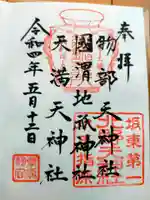 奉拝
坂東第一
北野聖廟
物部天神社
國渭地祇神社
天満天神社
令和四年五月十二日